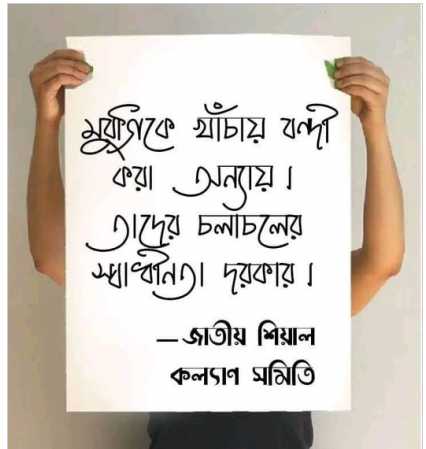 মুরগিকে খাঁচায় বন্দী
করা অন্যায় ।
তাদের চলাচলের
স্বাধীনতা দরকার ।
– জাতীয় শিয়াল
কল্যাণ সমিতি